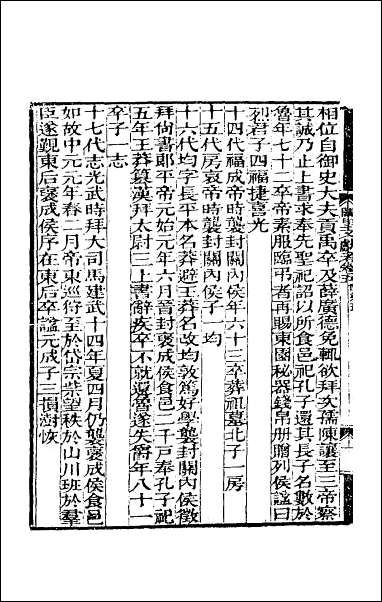 相位自御史大夫貢禹卒及薛廣德免輒欲拜文孺陳讓至三帝察
其誠乃止上書求奉先聖祀詔以所食邑祀孔子還其長子名數於
魯年七十二卒帝素服臨弔者再賜東園秘器錢帛册贈列侯諡曰
烈君子四福捷喜光
十四代福成帝時襲封關內侯年六十三卒葬祖墓北子一房
十五代房哀帝時襲封關內侯子一均
十六代均字長平本名莽避王莽名改均敦篤好學襲封關內侯徵
拜尚書郎平帝元始元年六月晉封褒成侯食邑二千戸奉孔子祀
五年王莽篡漢拜太尉三上書辭疾不就還魯遂失爵年八十一
卒子一志
十七代志光武時拜大司馬建武十四年夏四月仍襲褒成侯食邑
如故中元元年春二月帝東巡狩至於岱宗柴望秩於山川班於羣
臣遂覲東后褒成侯序在東后卒諡元成子三損澍恢